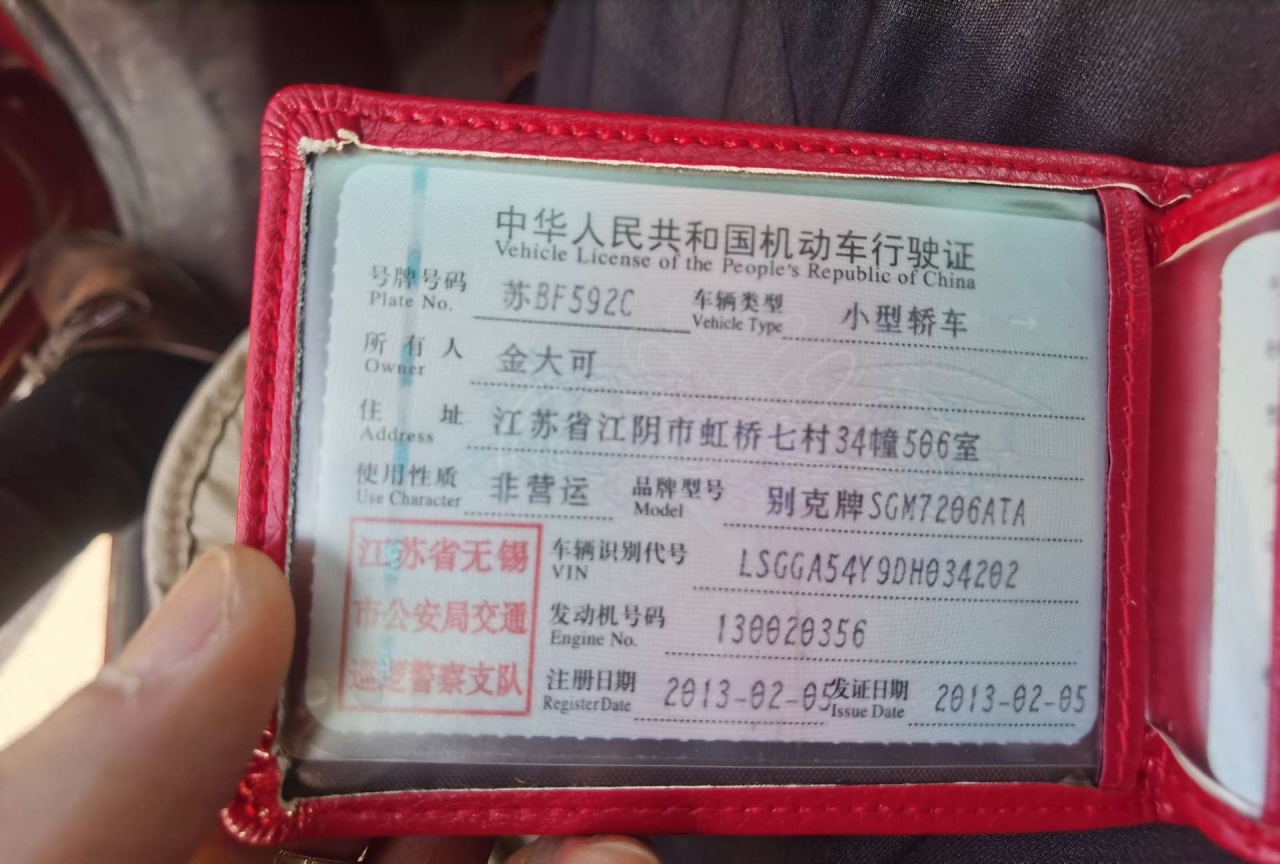 中华人民共和国机动车行驶证
Vehicle License of the People's Republic of China
号牌号码 苏BF592C 车辆类型 小型轿车
Plate No. Vehicle Type
所有人 金大可
Owner
住址 江苏省江阴市虹桥七村34幢506室
Address
使用性质 非营运 品牌型号 别克牌SGM7206ATA
Use Character Model
江苏省无锡
市公安局交通
巡逻警察支队
车辆识别代号 LSGGA54Y9DH034202
VIN
发动机号码 130020356
Engine No.
注册日期 2013-02-05 发证日期 2013-02-05
Register Date Issue Date